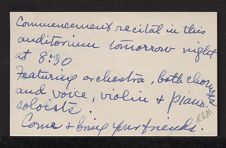 Commencement recital in this
auditorium tomorrow night
at 8:30
Featuring orchestra, both choruses
and voice, violin & piano
soloists
Come & bring your friends.